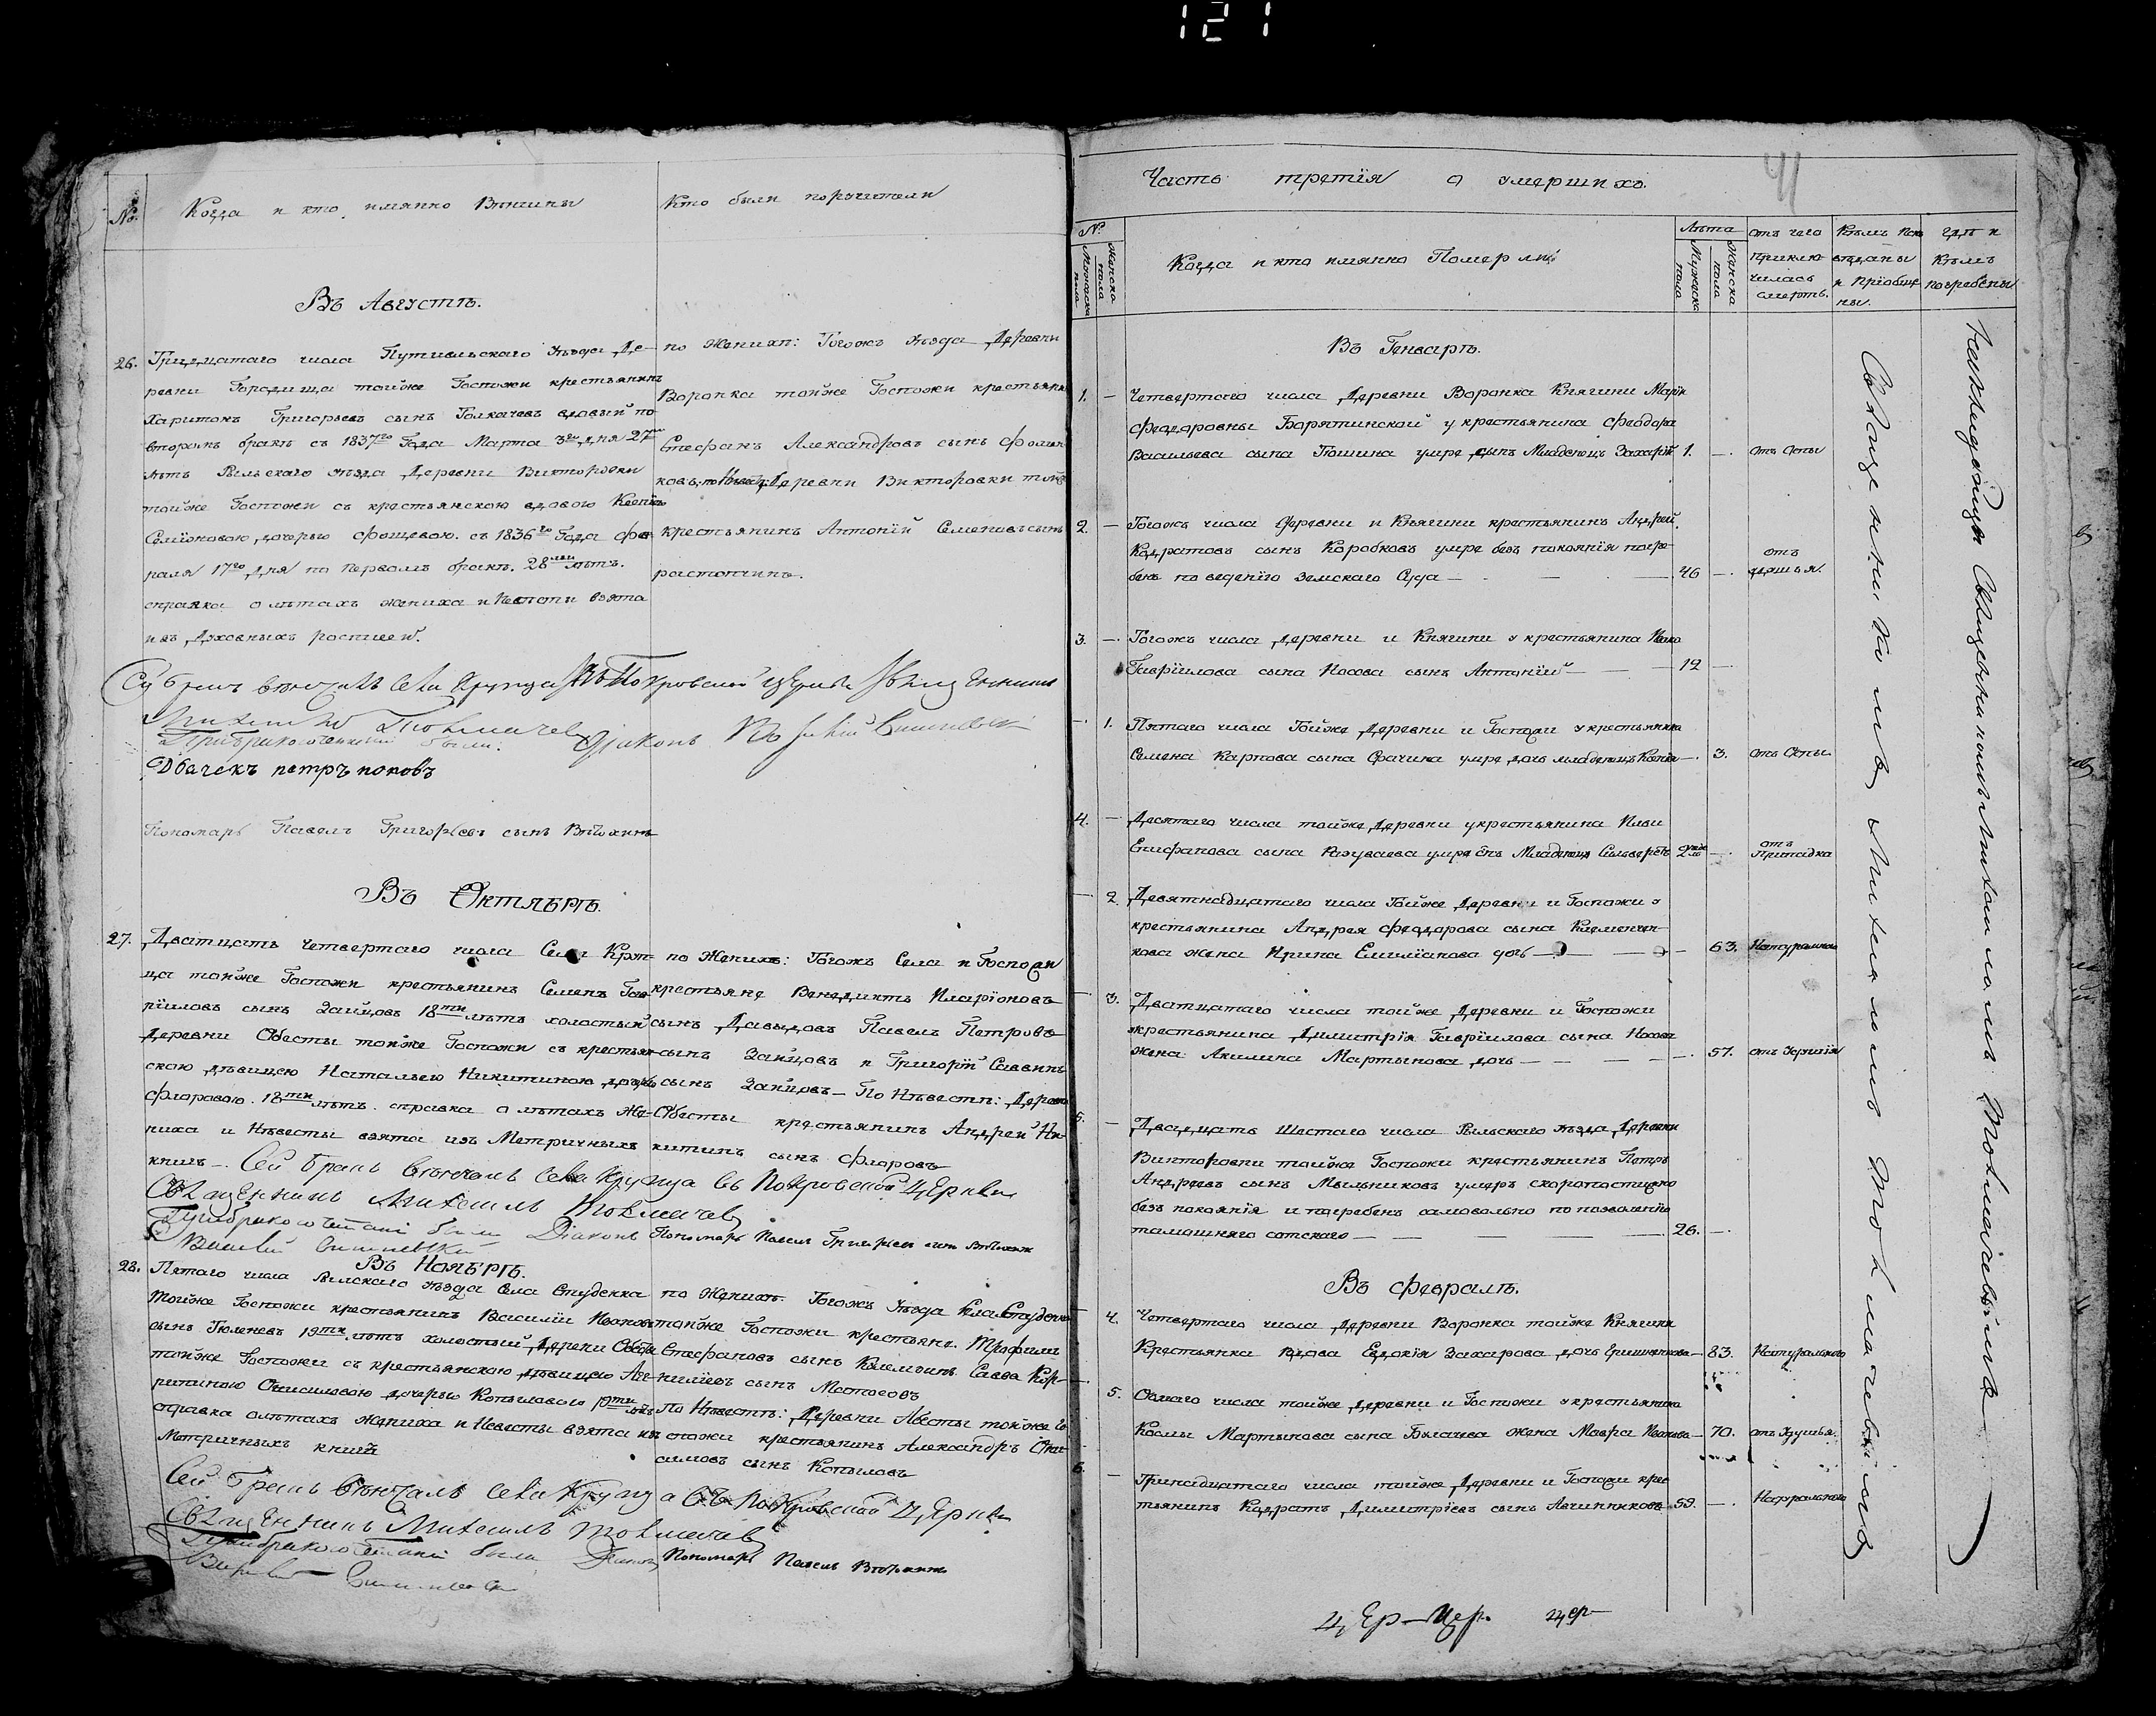 121
№
Когда и кто имянно Венчаны
Кто были поручители
Въ Августѣ.
26. Тридцатаго числа Путивльскаго уѣзда Де-
ревни Городища тойже Госпожи крестьянинъ
Харитонъ Григорьевъ сынъ Толкачевъ вдовый по
второмъ бракѣ съ 1837го Года Марта 3го дня 27ми
лѣтъ Рыльскаго уѣзда Деревни Викторовки
тойже Госпожи съ крестьянскою вдовою
Семіоновою дочерью съ 1836го Года Фев
раля 17го дня по первомъ бракѣ. 28ми лѣтъ.
справка о лѣтахъ жениха и Невѣсты взята
изъ Духовныхъ росписей.
по Женихѣ: Тогожъ уѣзда Деревни
Воронка тойже Госпожи крестьянинъ
Стефанъ Александровъ сынъ Фомин
ковъ; по Невѣстѣ: Деревни Викторовки той
крестьянинъ Антоній Семеновъ сынъ
растопчинъ.
Сей бракъ венчалъ села Крупца Покровской церкви Священникъ
Михаилъ Толмачевъ
При бракосочетаніи были: Діаконъ
Дьячекъ петръ поповъ
Пономарь Павелъ Григорьевъ сынъ
Въ Октябрѣ.
27. Дватцать четвертаго числа Села Круп-
ца тойже Госпожи крестьянинъ Семенъ Гав
рііловъ сынъ Зайцовъ 18ти лѣтъ холостый
Деревни Обесты тойже Госпожи съ крестьян
скою дѣвицею Натальею Никитиною дочерью
Флоровою. 18ти лѣтъ. справка о лѣтахъ Же-
ниха и Невѣсты взята изъ Метричныхъ
книгъ —
по Женихѣ: Тогожъ Села и Госпожи
крестьяне Венедиктъ Иларіоновъ
сынъ Давыдовъ Павелъ Петровъ
сынъ Зайцовъ и Григорій Саввинъ
сынъ Зайцовъ — По Невѣстѣ: Деревни
Обесты крестьянинъ Андрей Ни-
китинъ сынъ Флоровъ
Сей бракъ венчалъ села Крупца въ Покровской Церкви
Священникъ Михаилъ Толмачевъ
При бракосочетаніи были Діаконъ
Пономарь Павелъ Григорьевъ сынъ
Въ Ноябрѣ.
28. Пятаго числа Рыльскаго уѣзда Села Студенка
тойже Госпожи крестьянинъ Василій Ивановъ
сынъ Тюленевъ 19ти лѣтъ холостый Деревни Обесты
тойже Госпожи съ крестьянскою дѣвицею Аг-
рипиною Онисимовою дочерью Копыловою 19ти лѣтъ
справка о лѣтахъ жениха и Невесты взята изъ
Метричныхъ книгъ
по Женихѣ. Тогожъ Уѣзда Села Студенка
тойже Госпожи крестьяне. Трофимъ
Стефановъ сынъ Савва Кор-
ниліевъ сынъ
По Невѣстѣ: Деревни Обесты тойже Го
спожи крестьянинъ Александръ Они-
симовъ сынъ Копыловъ
Сей бракъ венчалъ села Крупца въ Покровской Церкви
Священникъ Михаилъ Толмачевъ
При бракосочетаніи были Діаконъ
Пономарь Павелъ
41
Часть третія о умершихъ.
№
Мужеска пола
Женска пола
Когда и кто имянно Померли
Лѣта
Мужеска пола
Женска пола
отъ чего приклю-чилась смерть.
Кѣмъ Испо вѣданы и пріобще ны.
гдѣ и кѣмъ погребены
Въ Генварѣ.
1. — Четвертаго числа Деревни Воронка Княгини Маріи
Феодоровны Барятинской у крестьянина Феодора
Васильева сына умре сынъ Младенецъ Захарій 1. — отъ Оспы
2. — Тогожъ числа Деревни и Княгини крестьянинъ Андрей
Кадратовъ сынъ Коробковъ умре безъ покоянія погре-
бенъ по веденію Земскаго Суда — 46 — отъ
3. — Тогожъ числа Деревни и Княгини у крестьянина
Гавріилова сына Носова сынъ Антоній — 12 —
— 1. Пятаго числа Тойже Деревни и Госпожи у крестьянина
Семена Карпова сына умре дочь младенецъ — 3. отъ Оспы
4. — Десятаго числа тойже Деревни у крестьянина Ильи
Епифанова сына умре сынъ Младенецъ Сильверстъ — отъ Припадка
— 2. Девятнадцатаго числа Тойже Деревни и Госпожи у
крестьянина Андрея Феодорова сына
кова жена Ирина Емиліанова дочь — 63. Натурально
— 3. Дватцатаго числа тойже Деревни и Госпожи
крестьянина Димитрія Гавріилова сына Носова
жена Акилина Мартынова дочь — 57.
5. — Двадцать Шестаго числа Рыльскаго уѣзда Деревни
Викторовки тойже Госпожи крестьянинъ Петръ
Андреевъ сынъ Мыльниковъ умеръ скоропостижно
безъ покоянія и погребенъ самовольно по позволенію
тамошняго сотскаго — 26. —
Въ Февралѣ.
— 4. Четвертаго числа Деревни Воронка тойже Княгини
Крестьянка вдова Евдокія Захарова дочь — 83. Натурально
— 5. Осмаго числа тойже Деревни и Госпожи у крестьянина
Козмы Мартынова сына жена Мавра Иванова — 70. отъ Удушья.
6. — Тринадцатаго числа тойже Деревни и Госпожи крес
тьянинъ Кадратъ Димитріевъ сынъ 59. — Натурально
Священникомъ Михаиломъ Толмачевымъ
Священникомъ Михаиломъ Толмачевымъ